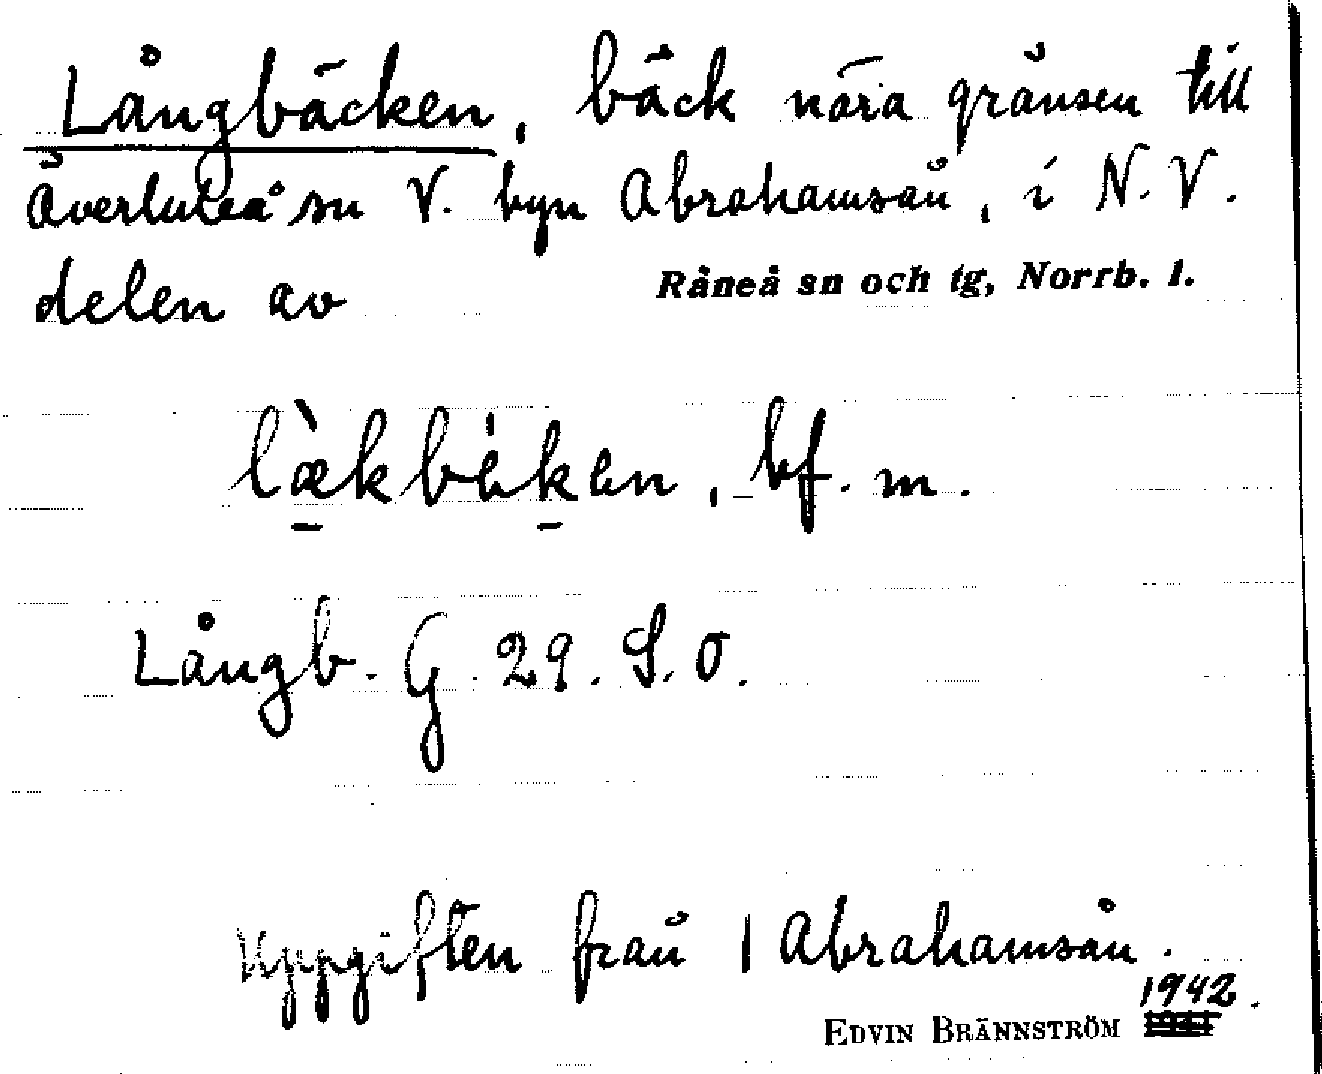 Långbäcken, bäck nära gränsen till
Överluleå sn V. byn Abrahamsån, i N.V.
delen av Råneå sn och tg, Norrb. l.
læ̀kbèken, bf. m.
Långb. G. 29. S.O.
Uppgiften från 1 Abrahamsån.
1942.
EDVIN BRÄNNSTRÖM